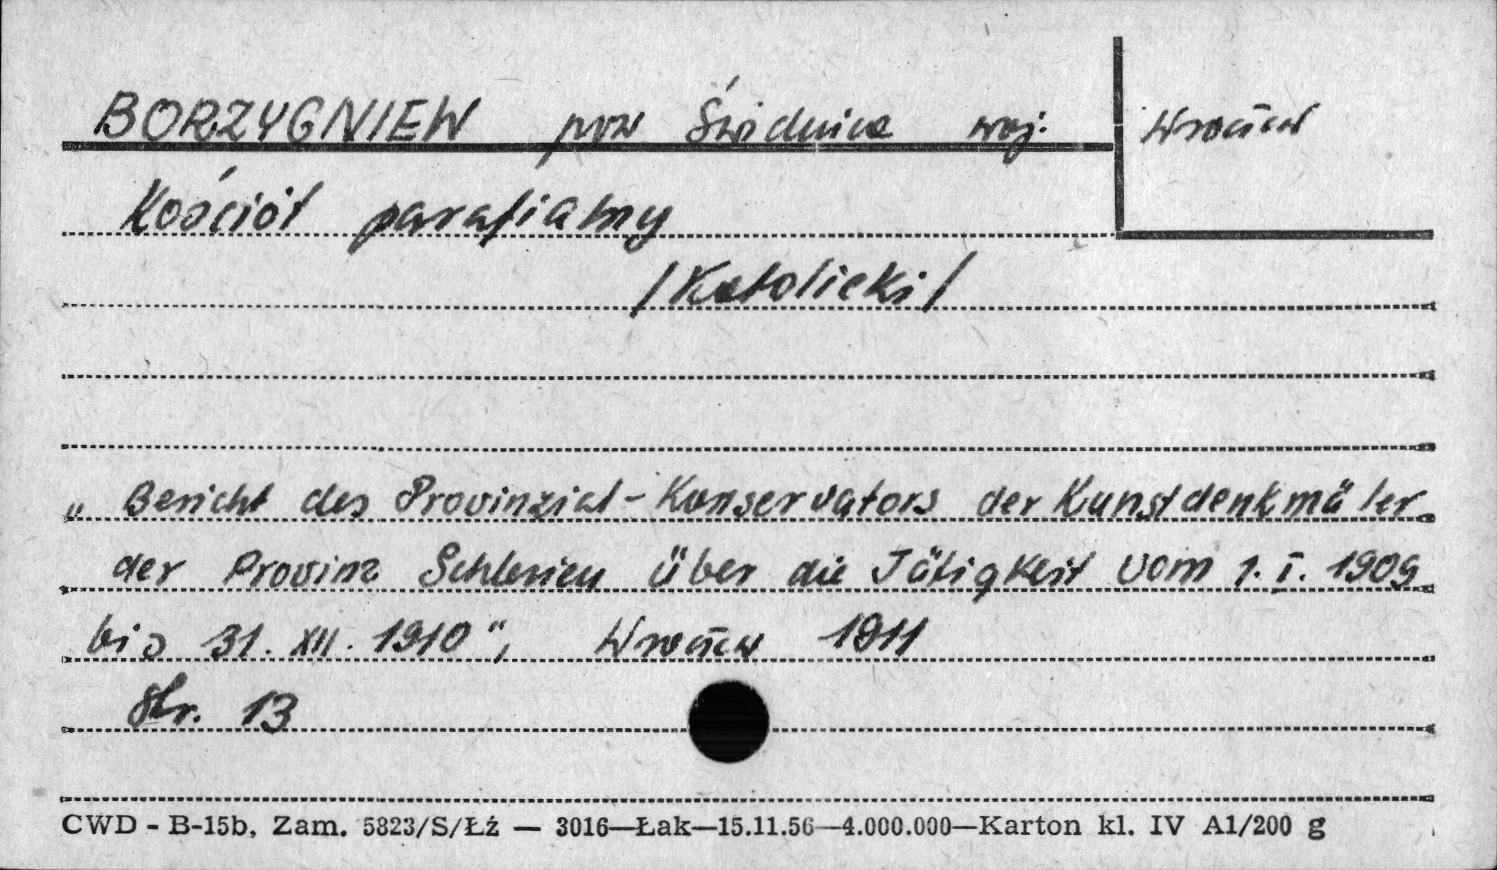 BORZYGNIEW pow Świdnica woj. Wrocław
Kościół parafialny
/Katolicki/
„Bericht des Provinzial-Konservators der Kunstdenkmäler
der Provinz Schlesien über die Tätigkeit vom 1.I.1909
bis 31.XII.1910", Wrocław 1911
Str. 13
CWD - B-15b, Zam. 5823/S/Łż — 3016—Łak—15.11.56—4.000.000—Karton kl. IV A1/200 g